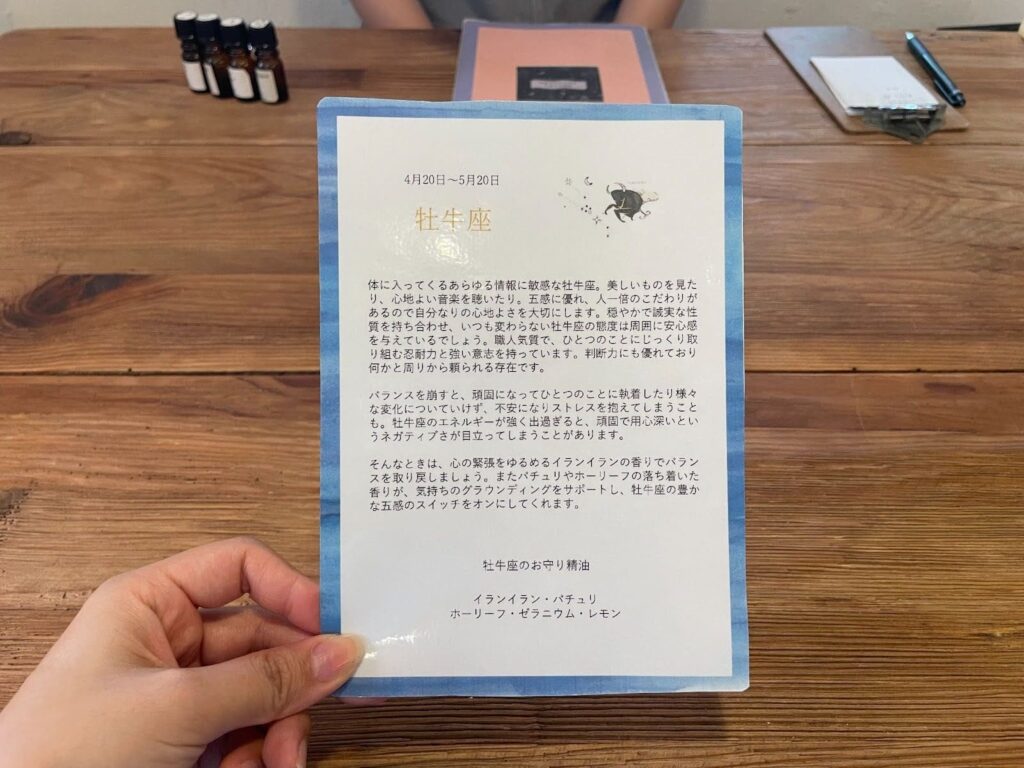 4月20日〜5月20日
牡牛座
体に入ってくるあらゆる情報に敏感な牡牛座。美しいものを見た
り、心地よい音楽を聴いたり。五感に優れ、人一倍のこだわりが
あるので自分なりの心地よさを大切にします。穏やかで誠実な性
質を持ち合わせ、いつも変わらない牡牛座の態度は周囲に安心感
を与えているでしょう。職人気質で、ひとつのことにじっくり取
り組む忍耐力と強い意志を持っています。判断力にも優れており
何かと周りから頼られる存在です。
バランスを崩すと、頑固になってひとつのことに執着したり様々
な変化についていけず、不安になりストレスを抱えてしまうこと
も。牡牛座のエネルギーが強く出過ぎると、頑固で用心深いとい
うネガティブさが目立ってしまうことがあります。
そんなときは、心の緊張をゆるめるイランイランの香りでバラン
スを取り戻しましょう。またパチュリやホーリーフの落ち着いた
香りが、気持ちのグラウンディングをサポートし、牡牛座の豊か
な五感のスイッチをオンにしてくれます。
牡牛座のお守り精油
イランイラン・パチュリ
ホーリーフ・ゼラニウム・レモン